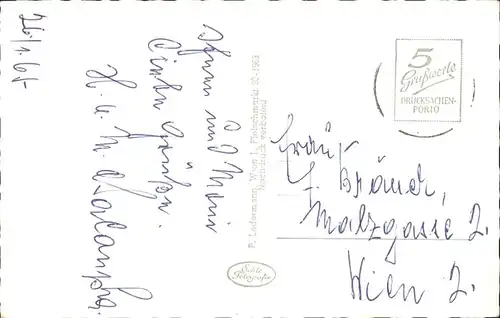 26/1.65
Ihnen und Mimi
liebe Grüße.
H. u. M.
P. Ledermann, Wien I, Fleischmarkt 20-1963
Nachdruck verboten!
Echte
Fotografie
5
Grußworte
DRUCKSACHEN-
PORTO
J. Bräuer,
Malzgasse 2.
Wien 2.